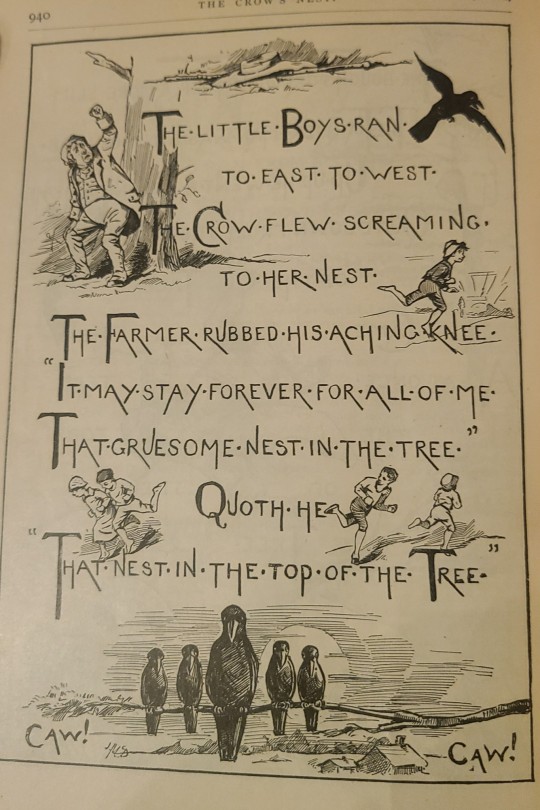 940
THE CROW'S NEST.
THE·LITTLE·BOYS·RAN·
TO·EAST·TO·WEST·
THE·CROW·FLEW·SCREAMING·
TO·HER·NEST·
THE·FARMER·RUBBED·HIS·ACHING·KNEE·
"IT·MAY·STAY·FOREVER·FOR·ALL·OF·ME·
THAT·GRUESOME·NEST·IN·THE·TREE·"
QUOTH·HE
"THAT·NEST·IN·THE·TOP·OF·THE·TREE·"
CAW!
CAW!